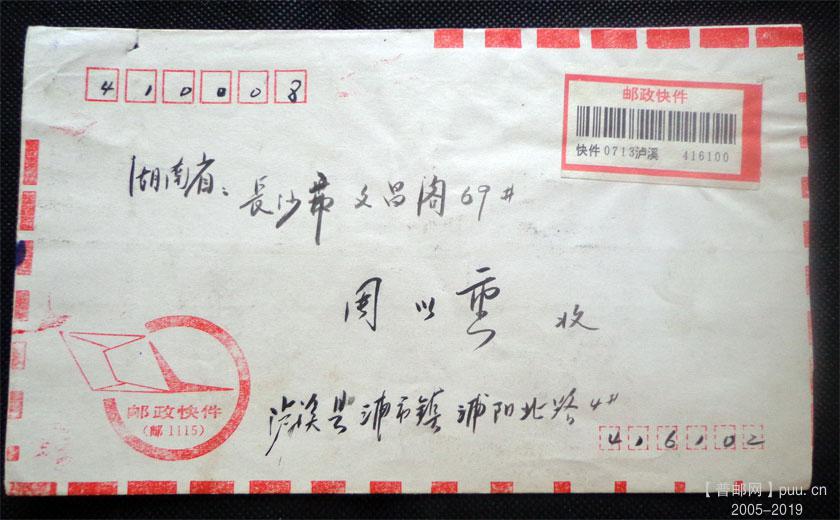 410008
邮政快件
快件0713泸溪 416100
湖南省:
長沙市文昌阁69#
周以 收
邮政快件
(邮1115)
泸溪县浦市镇浦阳北路4#
416102
【普邮网】puu.cn
2005-2019